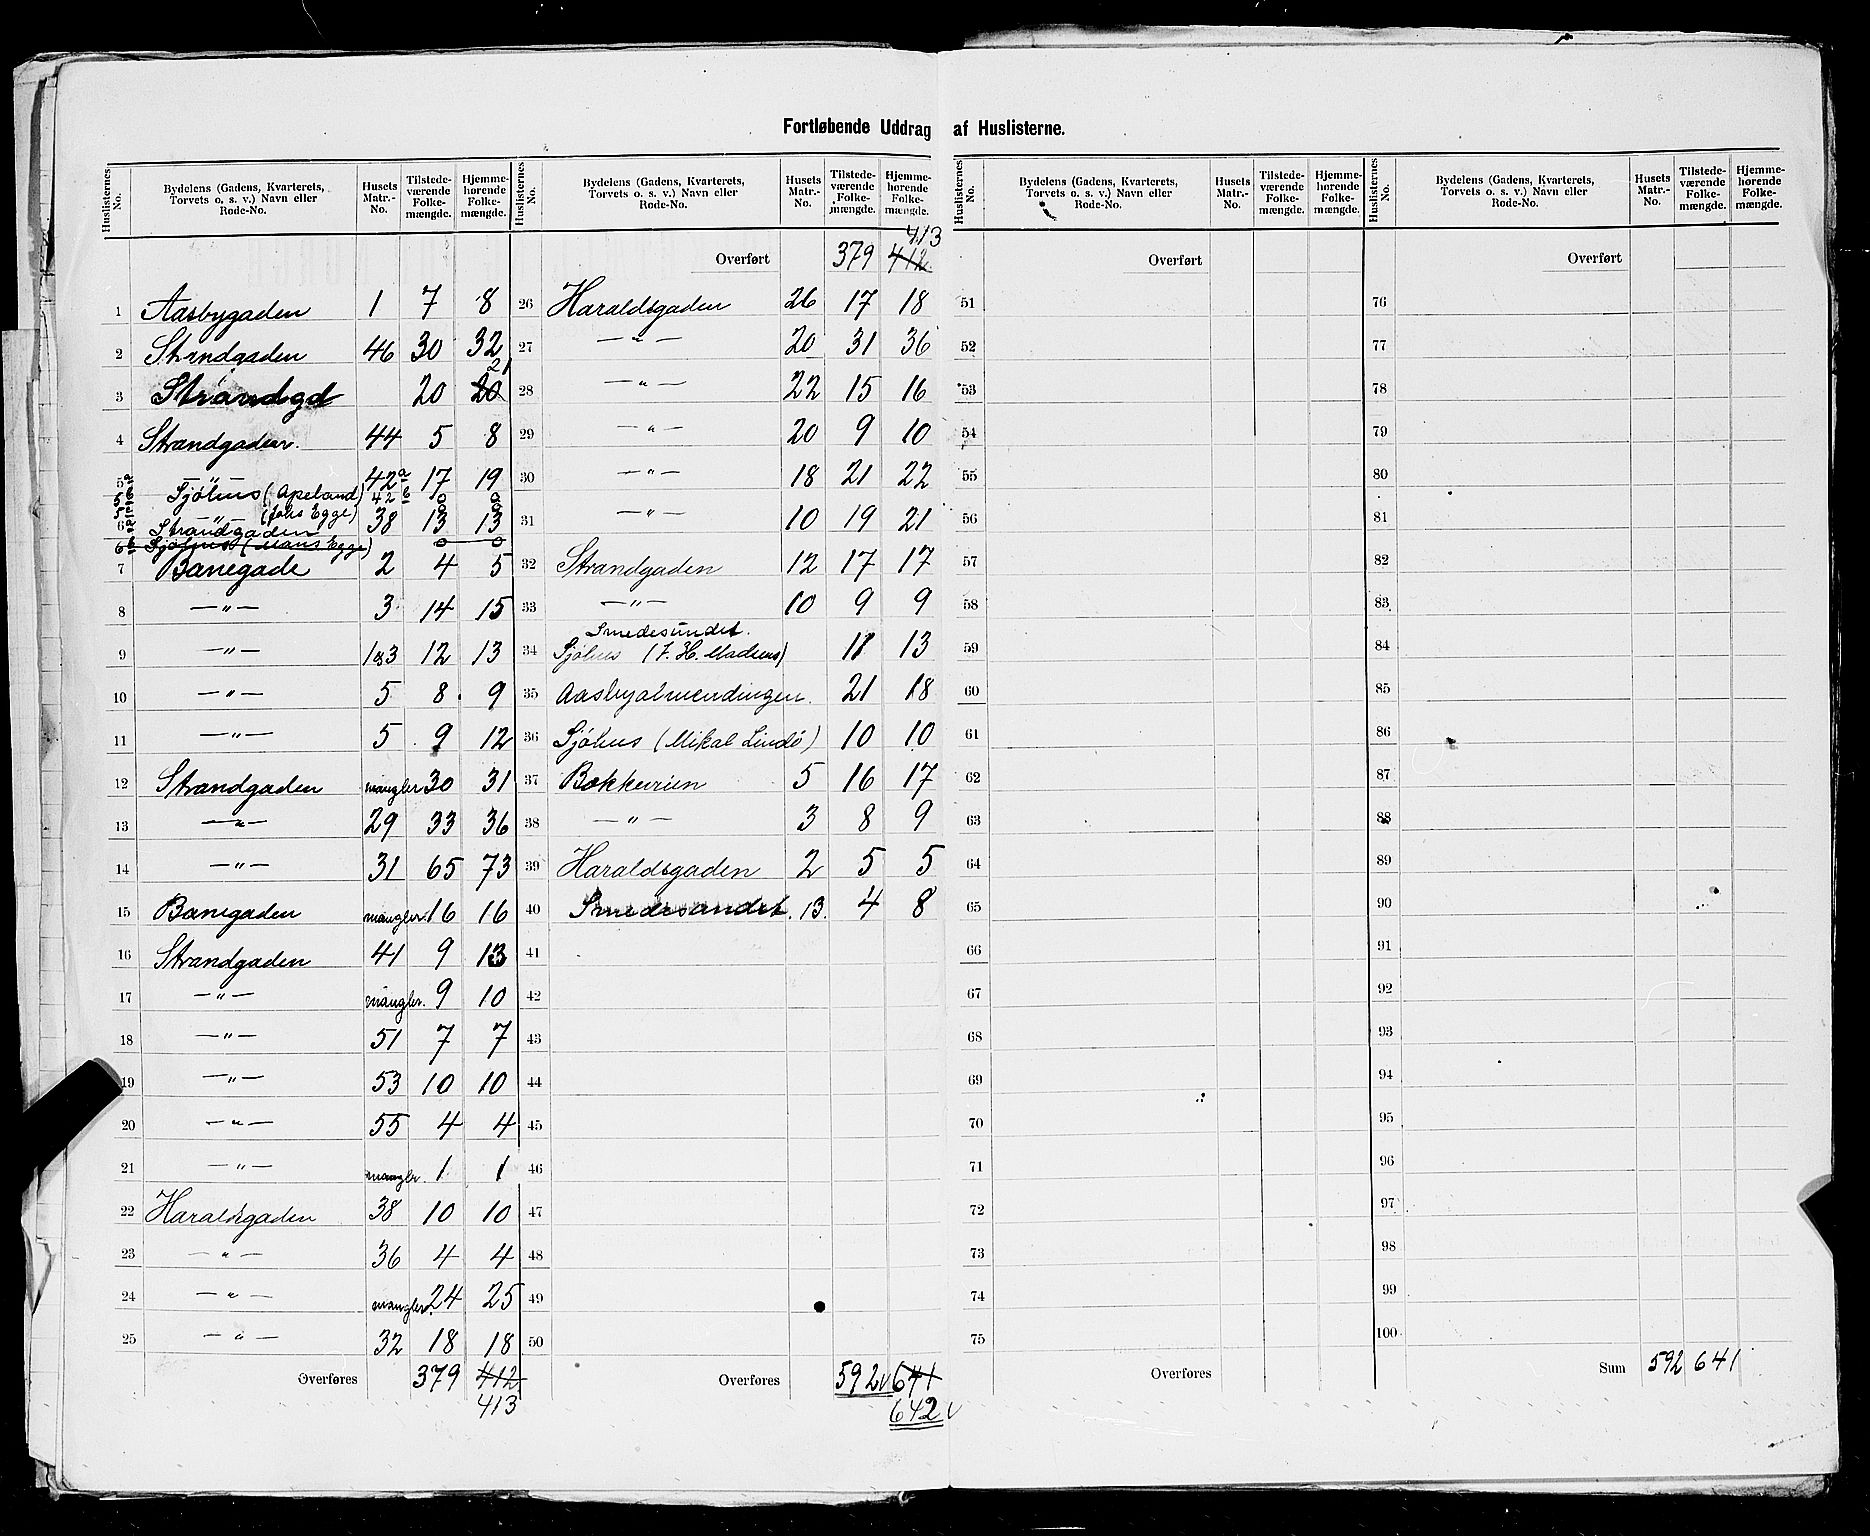 Fortløbende Uddrag af Huslisterne.
Huslisternes No. | Bydelens (Gadens, Kvarterets, Torvets o. s. v.) Navn eller Rode-No. | Husets Matr.-No. | Tilstedeværende Folkemængde. | Hjemmehørende Folkemængde.
1 Aasbygaden 1 7 8
2 Strandgaden 46 30 32
3 Strandgd 20 20 21
4 Strandgaden. 44 5 8
5 a — " — 42 a 17 19
5 b Sjøhus (Apeland) 42 b 0 0
— " — (Johs Egge) 0 0
6 a Strandgaden 38 13 13
6 b Sjøhus (Mons Egge) 0 0
7 Banegade 2 4 5
8 — " — 3 14 15
9 — " — 1&3 12 13
10 — " — 5 8 9
11 — " — 5 9 12
12 Strandgaden mangler 30 31
13 — " — 29 33 36
14 — " — 31 65 73
15 Banegaden mangler. 16 16
16 Strandgaden 41 9 13
17 — " — mangler. 9 10
18 — " — 51 7 7
19 — " — 53 10 10
20 — " — 55 4 4
21 — " — mangler. 1 1
22 Haraldsgaden 38 10 10
23 — " — 36 4 4
24 — " — mangler. 24 25
25 — " — 32 18 18
Overføres 379 412
413
Huslisternes No. | Bydelens (Gadens, Kvarterets, Torvets o. s. v.) Navn eller Rode-No. | Husets Matr.-No. | Tilstedeværende Folkemængde. | Hjemmehørende Folkemængde.
413
Overført 379 412
26 Haraldsgaden 26 17 18
27 — " — 20 31 36
28 — " — 22 15 16
29 — " — 20 9 10
30 — " — 18 21 22
31 — " — 10 19 21
32 Strandgaden 12 17 17
33 — " — 10 9 9
Smedesundet.
34 Sjøhus (F. H. Madsens) 11 13
35 Aasbyalmendingen. 21 18
36 Sjøhus (Mikal Lindø) 10 10
37 Bakkeveien 5 16 17
38 — " — 3 8 9
39 Haraldsgaden 2 5 5
40 Smedesundet. 13. 4 8
41
42
43
44
45
46
47
48
49
50
Overføres 592 641
642
Huslisternes No. | Bydelens (Gadens, Kvarterets, Torvets o. s. v.) Navn eller Rode-No. | Husets Matr.-No. | Tilstedeværende Folkemængde. | Hjemmehørende Folkemængde.
Overført
51
52
53
54
55
56
57
58
59
60
61
62
63
64
65
66
67
68
69
70
71
72
73
74
75
Overføres
Huslisternes No. | Bydelens (Gadens, Kvarterets, Torvets o. s. v.) Navn eller Rode-No. | Husets Matr.-No. | Tilstedeværende Folkemængde. | Hjemmehørende Folkemængde.
Overført
76
77
78
79
80
81
82
83
84
85
86
87
88
89
90
91
92
93
94
95
96
97
98
99
100
Sum 592 641